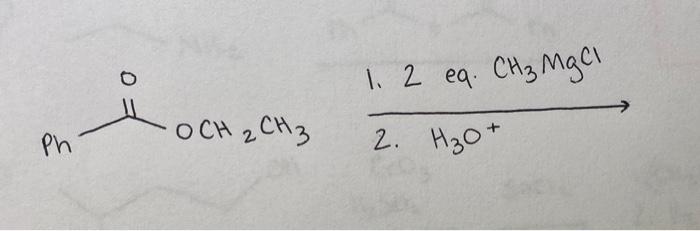 O
Ph
OCH2CH3
1. 2 eq. CH3MgCl
2. H3O+